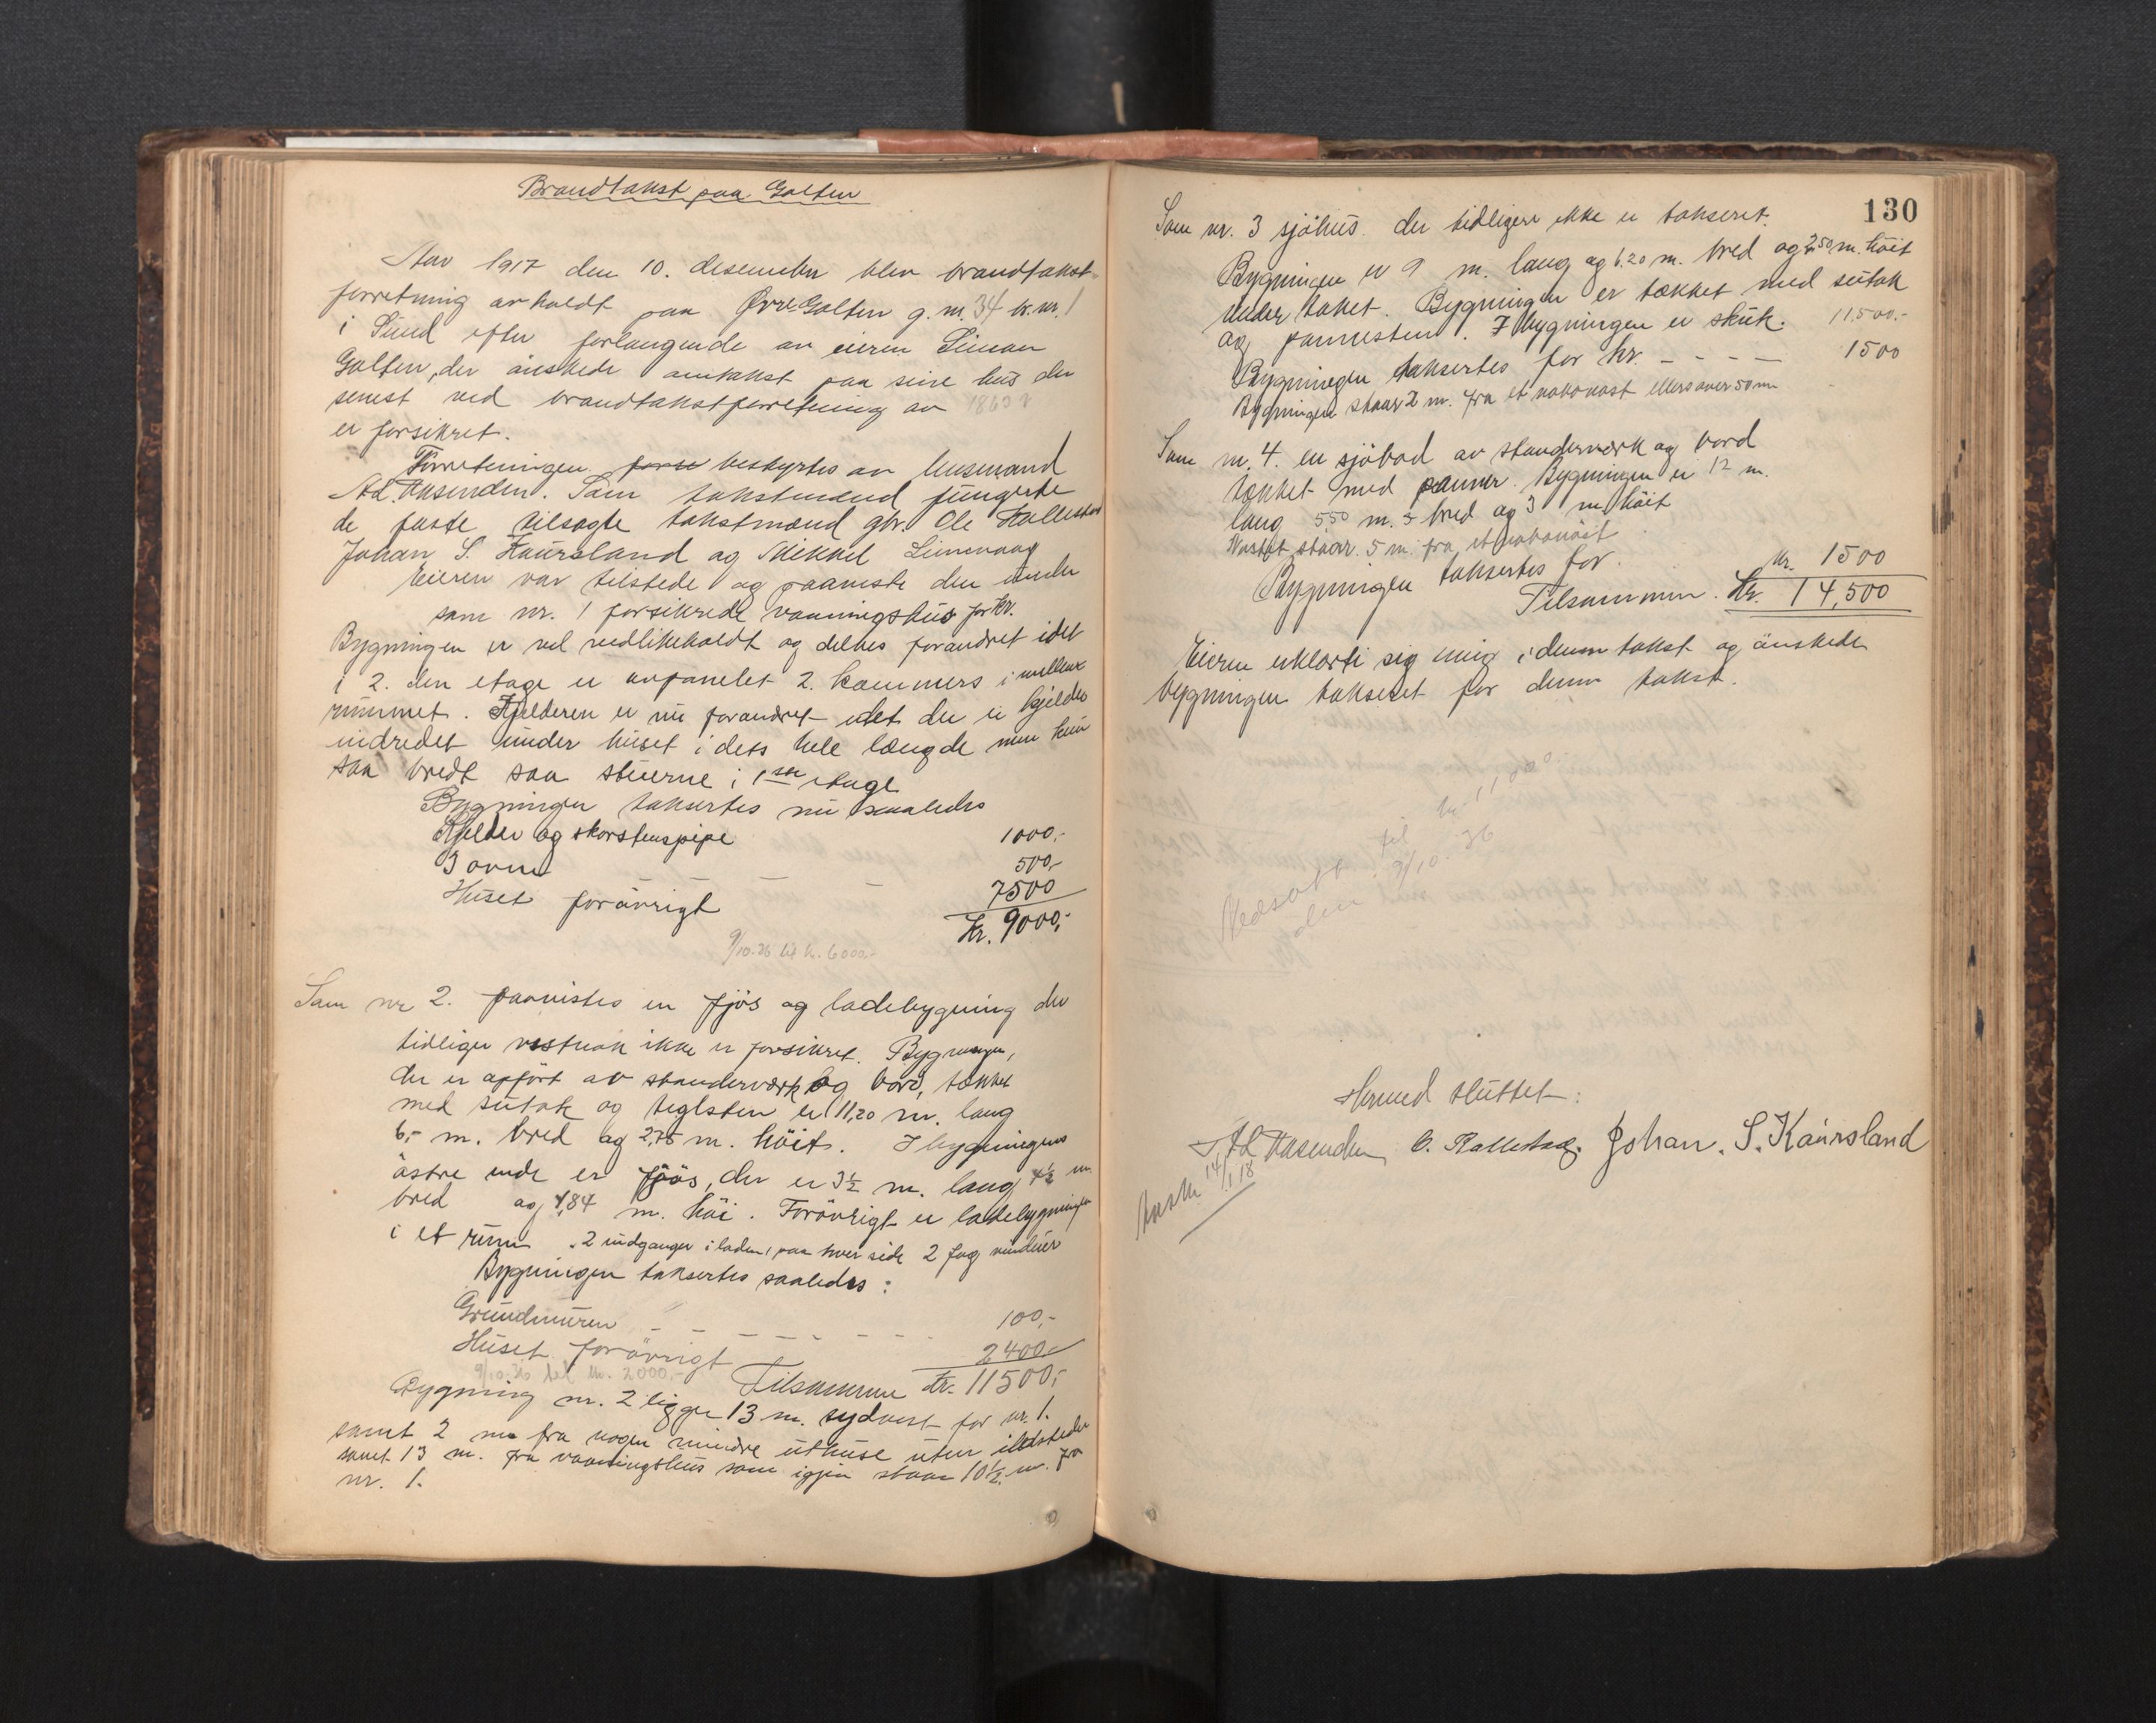 Brandtakst paa Golten
Aar 1917 den 10. desember blev brandtakst-
forretning avholdt paa Øvre Golten g.nr. 34 br.nr. 1
i Sund efter forlangende av eieren Simon
Golten, der önskede omtakst paa sine hus der
senest ved brandtakstforretning av
er forsikret.
Forretningen forse bestyrtes av lensmand
Ad. Aasenden. Som takstmænd fungerte
de faste tilsagte takstmænd gbr. Ole Kallestad
Johan S. Kaursland og Mikkel
Eieren var tilstede og paaviste den under
som nr. 1 forsikrede vaaningshus for kr.
Bygningen er vel vedlikeholdt og delvis forandret idet
i 2. den etage er avpanelet 2. kammers i mellem
rummet. Kjelderen er nu forandret idet der er kjelder
indredet under huset i dets hele længde men kun
saa bredt saa stuerne i 1ste etage
Bygningen taksertes nu saaledes
Kjelder og skorstenspipe 1000,-
3 ovne 500,-
Huset forövrigt 7500
Kr. 9000,-
9/10.36 til kr. 6000.-
Som nr 2. paavistes en fjös og ladebygning der
tidliger ikke er forsikret. Bygningen,
der er opfört av standerværk og bord, tækket
med sutak og teglsten er 11,20 m. lang
6,- m. bred og 2,75 m. höit. I bygningens
östre ende er fjös, der er 3½ m. lang 4½ m.
bred og 1,84 m. höi. Forövrigt er ladebygningen
i et rum. 2 indganger i laden, paa hver side 2 fag vinduer
Bygningen taksertes saaledes:
Grundmuren - - - - - - - 100,-
Huset forövrigt 2400.-
9/10.36 til kr. 2000,-
Tilsammen Kr. 11500,-
Bygning nr. 2 ligger 13 m. sydvest for nr. 1.
samt 2 m fra nogen mindre uthuse uten ildsteder
samt 13 m. fra vaaningshus som igjen staar 10½ m. fra
nr. 1.
130
Som nr. 3 sjöhus der tidligere ikke er takseret.
Bygningen er 9 m. lang og 6.20 m. bred og 2,50 m. höit
under taket. Bygningen er tækket med sutak
og pannesten. I bygningen er skuk. 11.500.-
Bygningen taksertes for kr. - - - - 1500
Bygningen staar 2 m. fra et nabonøst ellers over 50 m
Som nr. 4. en sjöbod av standerværk og bord
tækket med panner. Bygningen er 12 m.
lang 5,50 m. bred og 3 m höit
Nøstet staar 5 m fra et nabonöst
Bygningen taksertes for. kr. 1500
Tilsammen. Kr. 14,500
Eieren erklærte sig enig i denne takst og önskede
bygningen takseret for denne takst.
Nedsatt til kr. 11000.
den 9/10. 36
Hermed sluttet:
Ad Aasenden O. Kallestad. Johan. S. Kaursland
14/1 18